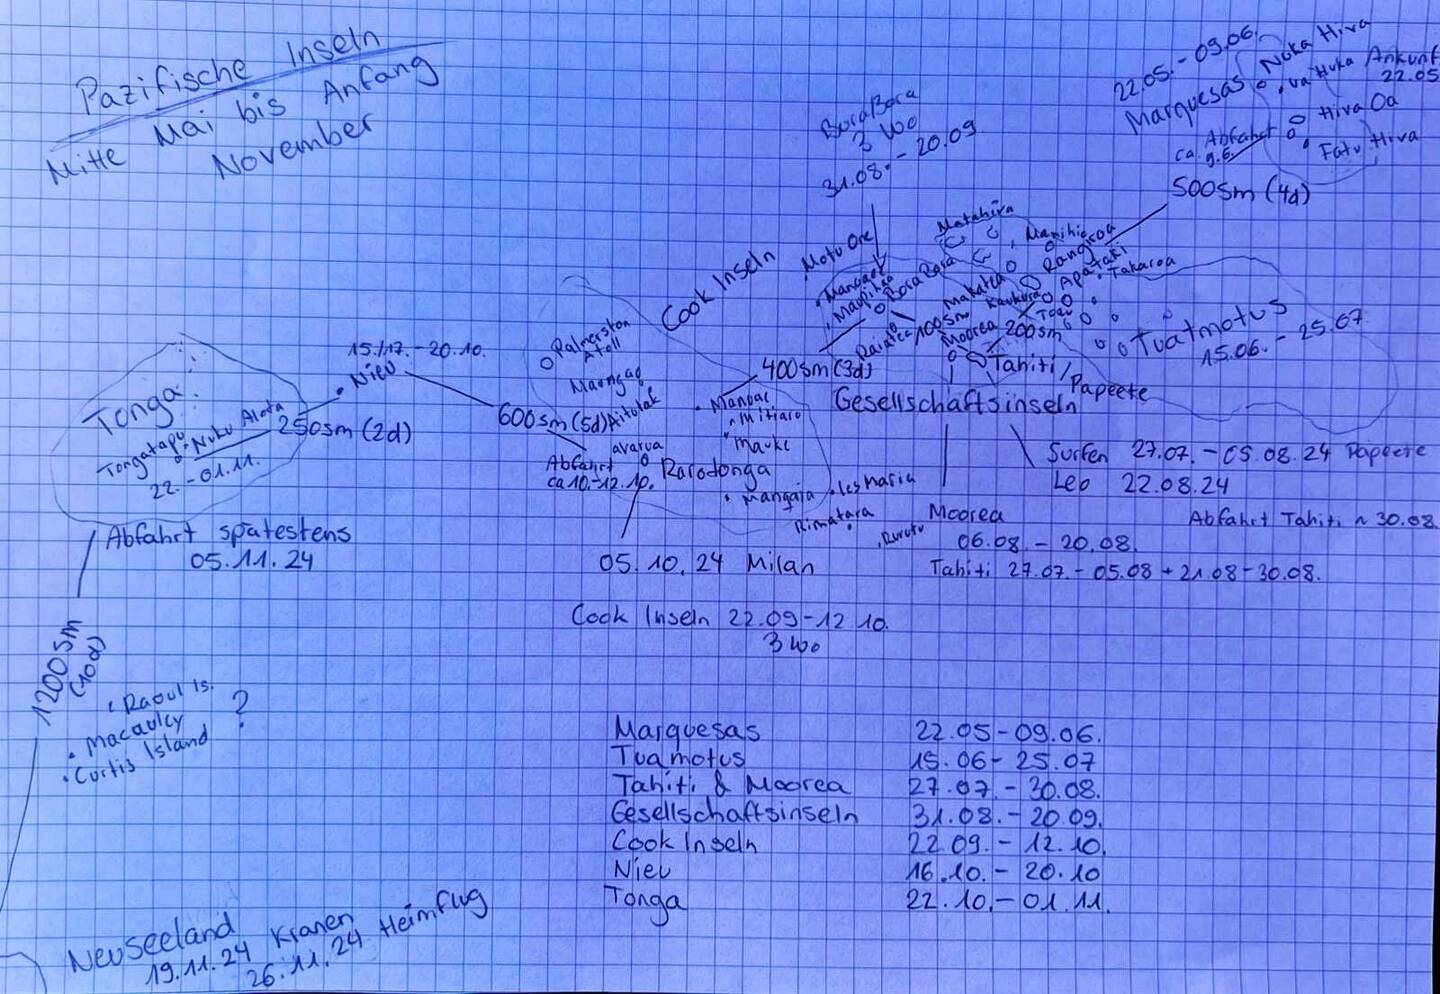 Pazifische Inseln
Mitte Mai bis Anfang
November
Bora Bora
3 Wo
31.08. - 20.09
22.05. - 09.06.
Marquesas
Nuka Hiva
Ua Huka Ankunft
22.05
Hiva Oa
Fatu Hiva
ca. Abfahrt
9.6.
500sm (4d)
Matahiva
Manihi
Rangiroa
Apataki
Takaroa
Makatea
Kaukura
Toau
Tuatmotus
15.06. - 25.07
Motu One
Maupihaa
Bora Bora
Raiatea
100sm
Moorea
200sm
Tahiti / Papeete
400sm (3d)
Gesellschaftsinseln
Cook Inseln
Palmerston
Atoll
Aitutak
Mitiaro
Mauke
avarua
Rarodonga
Mangaia
Îles Maria
Rimatara
Rurutu
Abfahrt
ca 10.-12.10.
600sm (5d)
15./17. - 20.10.
Nieu
Tonga
Tongatapu
Nuku Alofa
22. - 01.11.
250sm (2d)
Abfahrt spätestens
05.11.24
05.10.24 Milan
Cook Inseln 22.09-12.10.
3 Wo
Surfen 27.07. - 05.08.24 Papeete
Leo 22.08.24
Abfahrt Tahiti ~ 30.08.
Moorea
06.08. - 20.08.
Tahiti 27.07. - 05.08 + 21.08 - 30.08.
1200sm
(10d)
Raoul Is.
Macauley
Curtis Island
?
Marquesas 22.05 - 09.06.
Tuamotus 15.06 - 25.07
Tahiti & Moorea 27.07. - 30.08.
Gesellschaftsinseln 31.08. - 20.09.
Cook Inseln 22.09. - 12.10.
Nieu 16.10. - 20.10
Tonga 22.10. - 01.11.
Neuseeland
19.11.24 Kranen
26.11.24 Heimflug